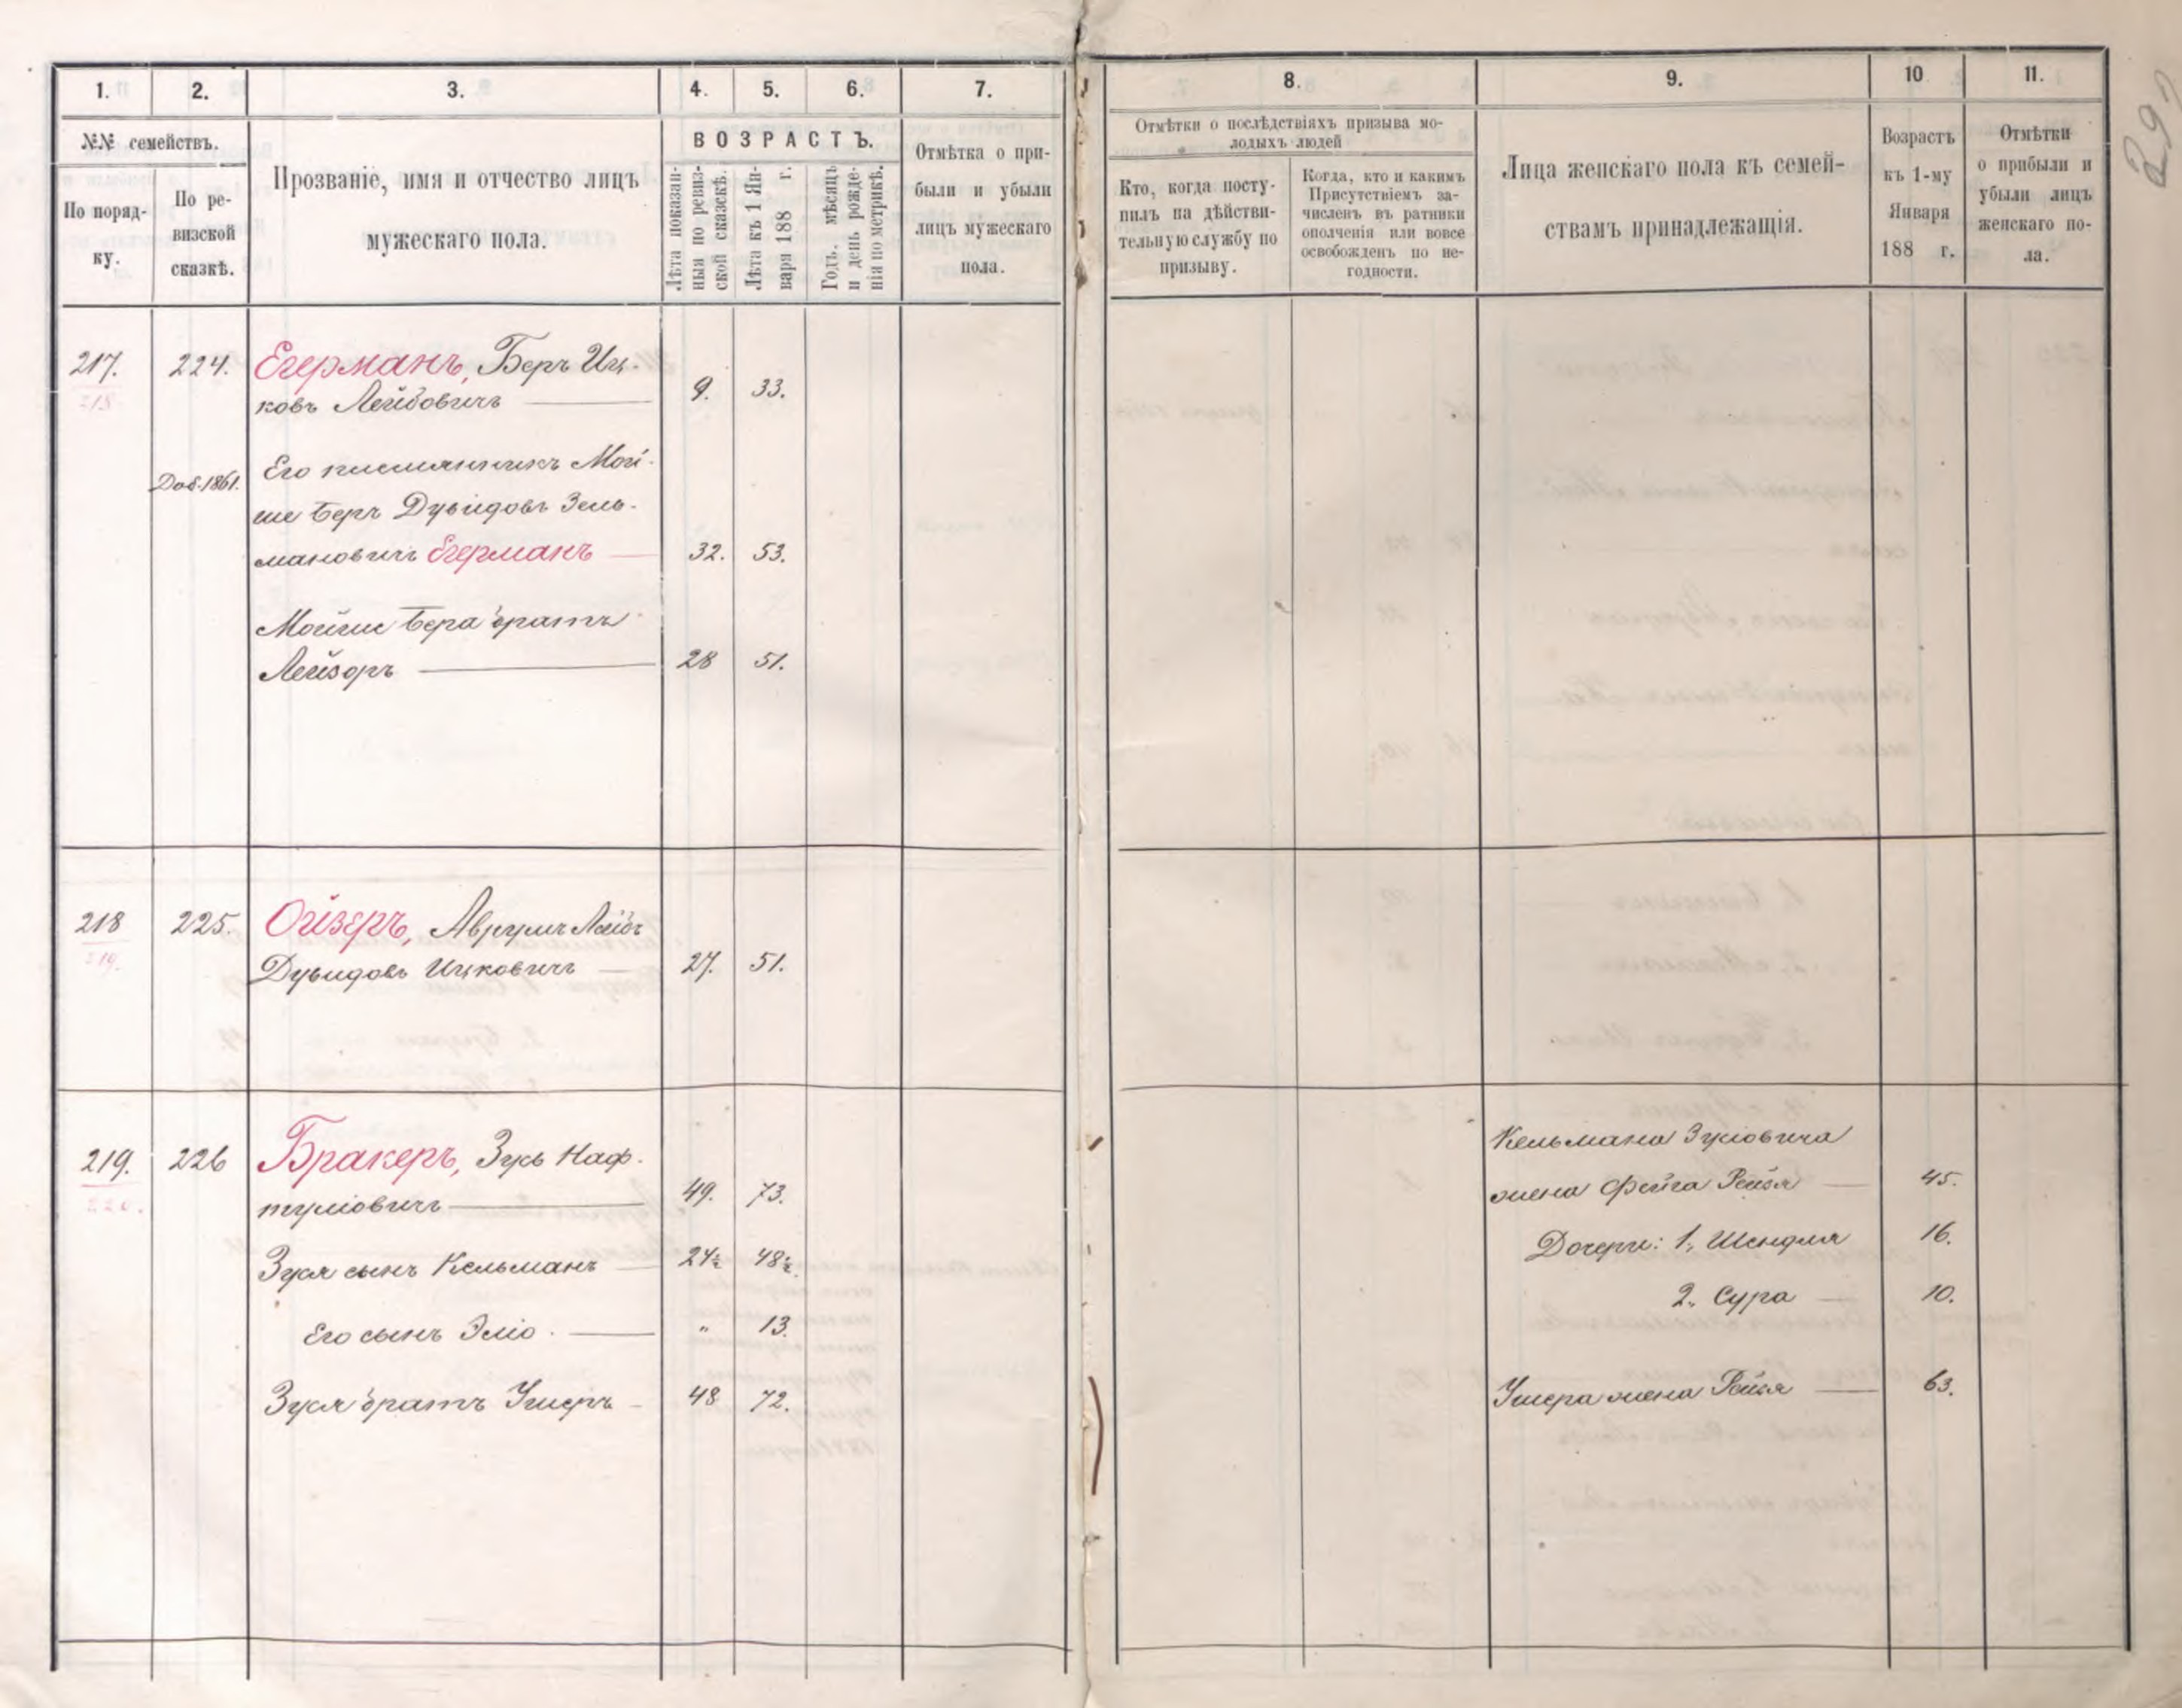 1. 2. 3. 4. 5. 6. 7.
№№ семействъ.
По поряд-
ку.
По ре-
визской
сказкѣ.
Прозваніе, имя и отчество лицъ
мужескаго пола.
ВОЗРАСТЪ.
Лѣта показан-
ныя по ревиз-
ской сказкѣ.
Лѣта къ 1 Ян-
варя 188 г.
Годъ, мѣсяцъ
и день рожде-
нія по метрикѣ.
Отмѣтка о при-
были и убыли
лицъ мужескаго
пола.
217. 224. Егерманъ, Беръ Иц-
218
ковъ Лейбовичъ 9. 33.
Доб. 1861. Его племянникъ Мой-
ше Беръ Дувидовъ Зель-
мановичъ Егерманъ 32. 53.
Мойше Бера братъ
Лейзоръ 28 51.
218 225. Ойзеръ, Аврумъ Лейбъ
219.
Дувидовъ Ицковичъ 27. 51.
219. 226 Бракеръ, Зусь Наф-
220.
туліовичъ 49. 73.
Зуся сынъ Кельманъ 24½ 48½.
Его сынъ Эліо. " 13.
Зуся братъ Ушеръ 48 72.
8. 9. 10 11.
Отмѣтки о послѣдствіяхъ призыва мо-
лодыхъ людей
Кто, когда посту-
пилъ на дѣйстви-
тельную службу по
призыву.
Когда, кто и какимъ
Присутствіемъ за-
численъ въ ратники
ополченія или вовсе
освобожденъ по не-
годности.
Лица женскаго пола къ семей-
ствамъ принадлежащія.
Возрастъ
къ 1-му
Января
188 г.
Отмѣтки
о прибыли и
убыли лицъ
женскаго по-
ла.
Кельмана Зусіовича
жена Фейга Рейзя 45.
Дочери: 1, Шендля 16.
2, Сура 10.
Ушера жена Рейзя 63.